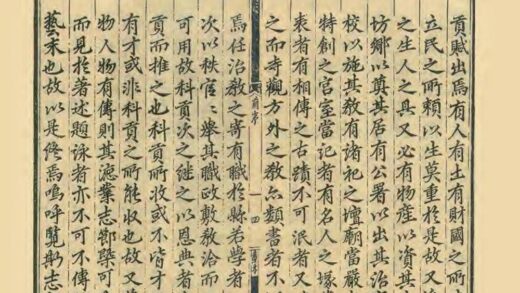 貢賦出焉有人有土有財國之所
立民之所賴以生莫重於是故又
之生人之具又必有物產以資其
坊鄉以奠其居有公署以出其治
校以施其教有諸祀之壇廟當嚴
特創之宮室當記者有名人之塚
表者有相傳之古蹟不可泯者又
之而寺觀方外之教亦類書者不
四
焉任治教之寄有職於縣若學者
次以秩官〻舉其職政敷教洽而
可用故科貢次之継之以恩典者
貢而推之也科貢所收或不皆才
有才或非科貢之所能收也故又
物人物有傳則其業志節槩可
而見於著述題詠者亦不可不傳
藝末也故以是終焉嗚呼覽斯志